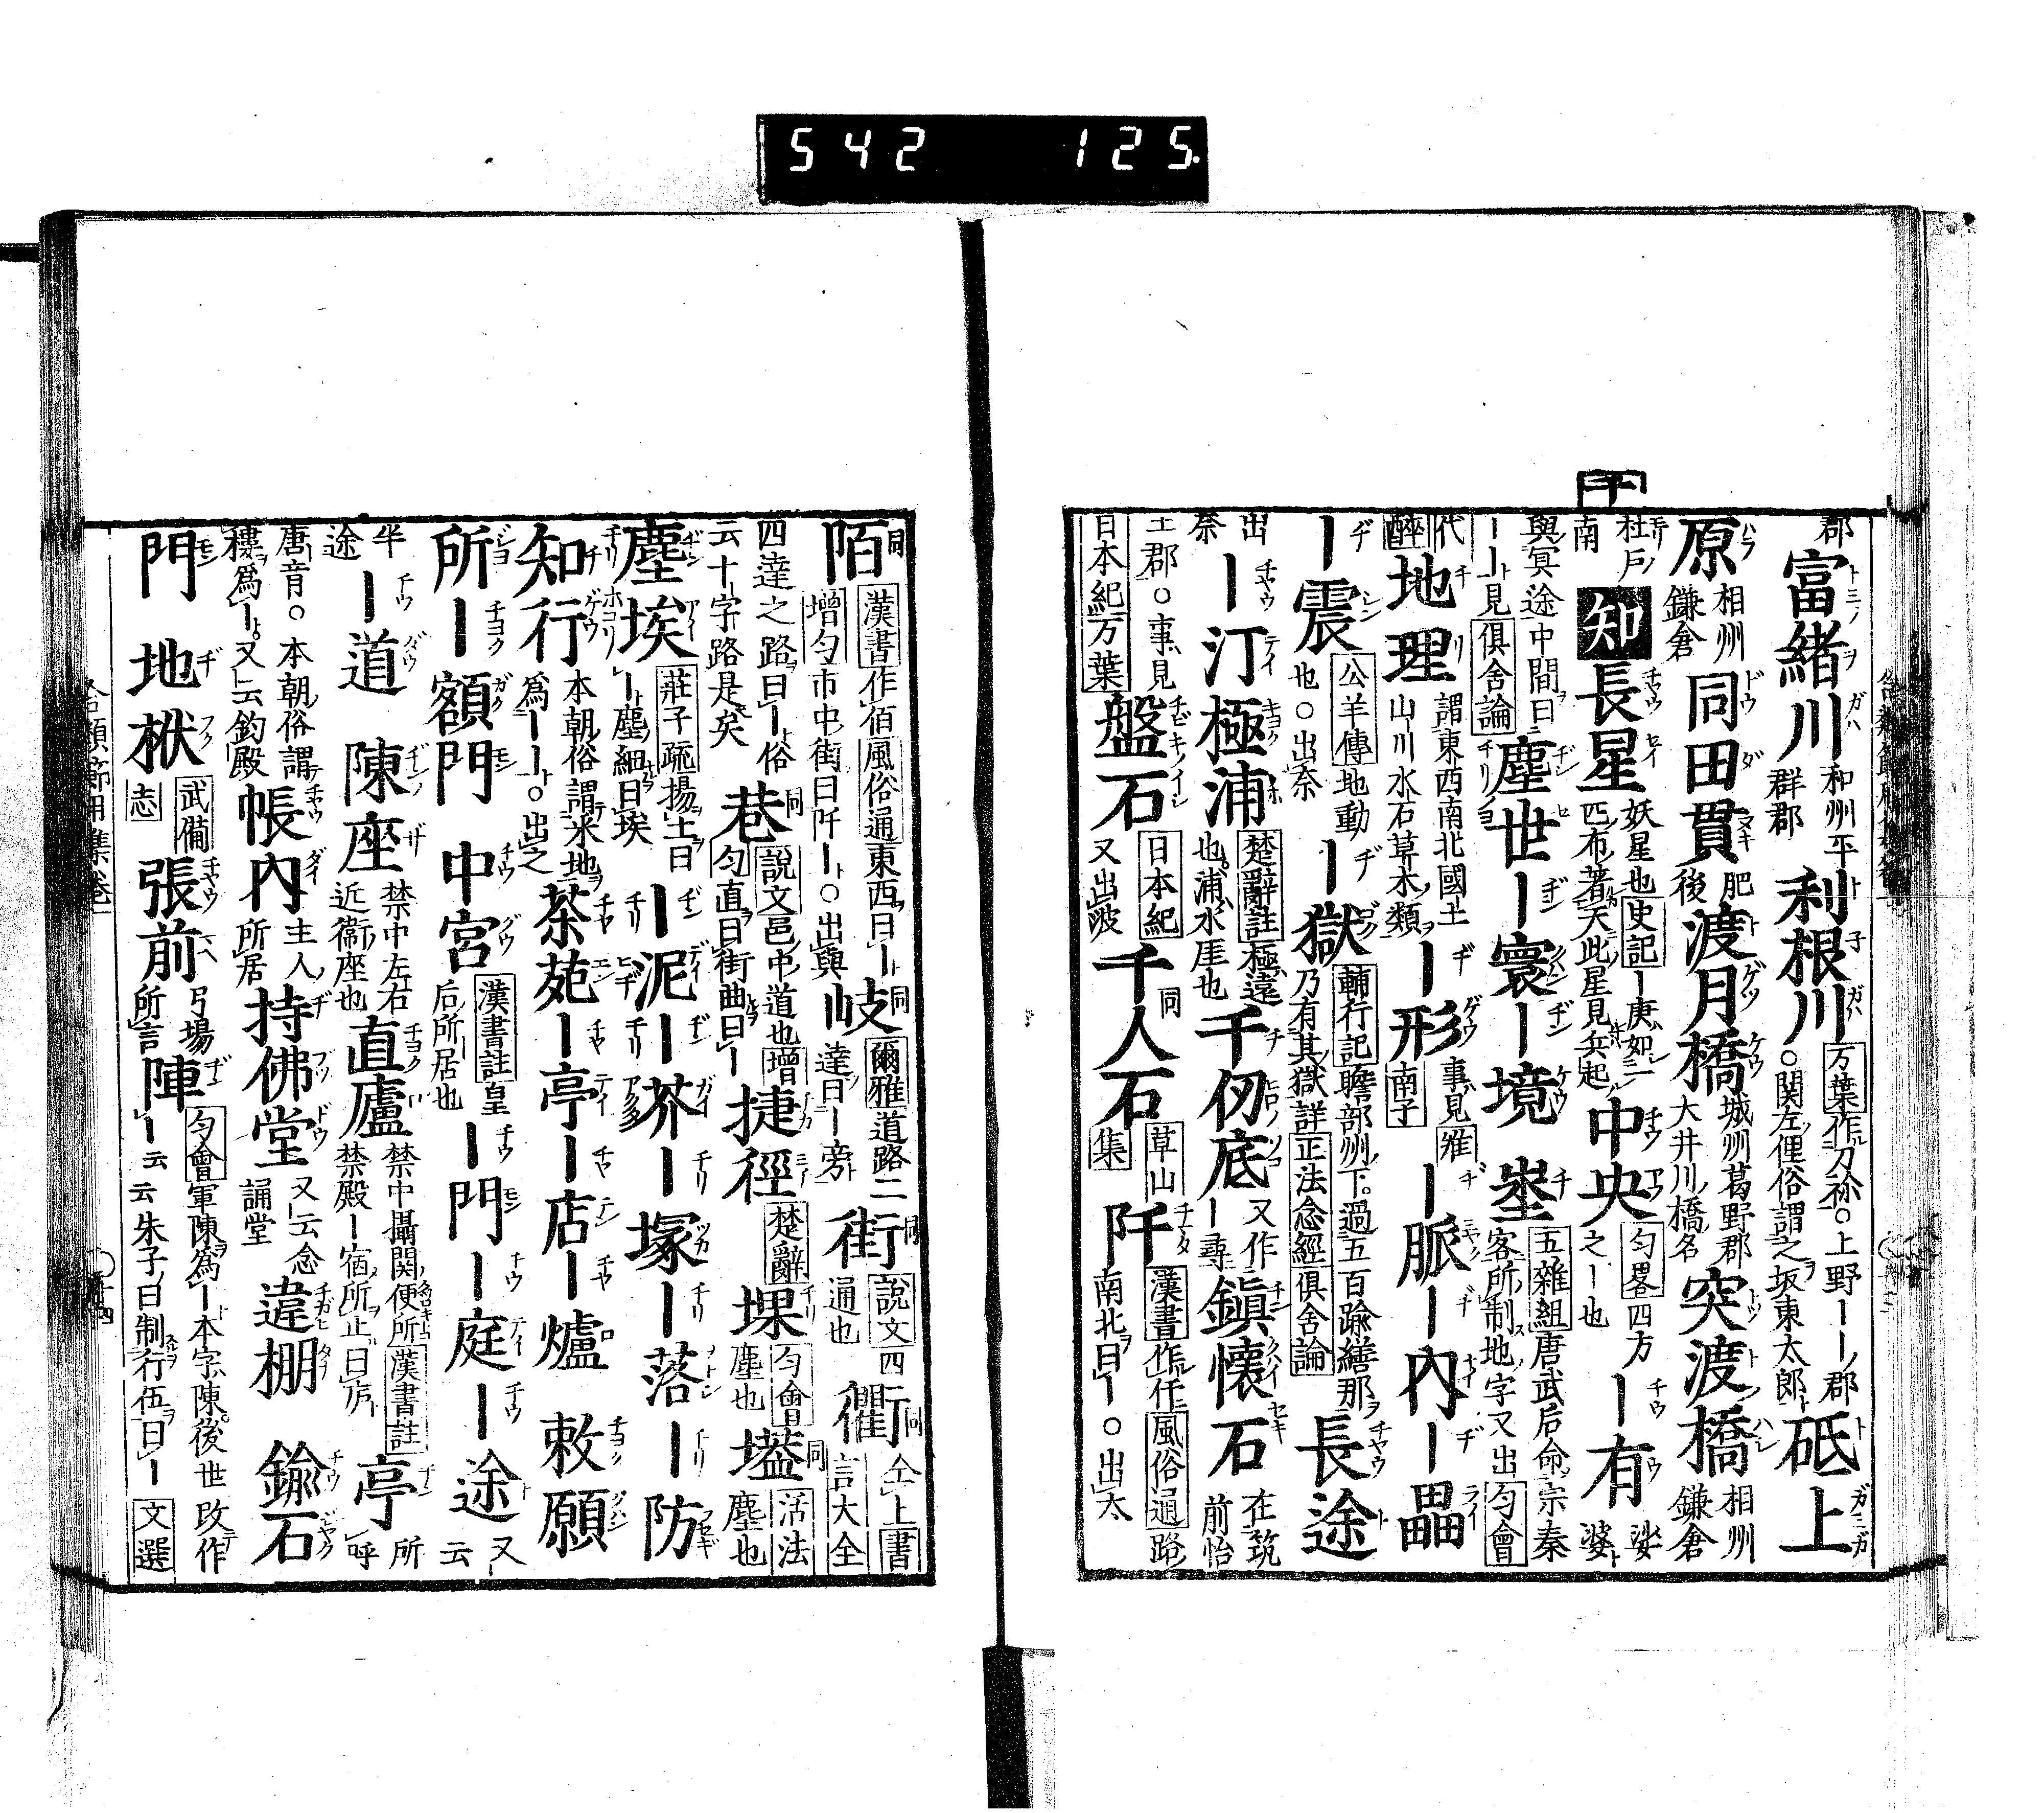 542 125.
チ
郡 富緒川 和州平群郡 利根川 万葉作刀祢。上野ーー郡。関左俚俗謂之坂東太郎 砥上
原 相州鎌倉 同田貫 肥後 渡月橋 城州葛野郡大井川橋名 突渡橋 相州鎌倉
杜戸南 知 長星 妖星也史記ー庚如一匹布著天此星見兵起 中央 匀畧四方之ー也 ー有 娑婆
與冥途中間曰ーー見倶舎論 塵世 ー寰 ー境 埊 五雜組唐武后命宗秦客所制地字又出匀會
代醉 地理 謂東西南北國土山川水石草木類 ー形 事見淮南子 ー脈 ー內 ー畾
ー震 公羊傳地動也。出奈 ー獄 輔行記贍部洲下過五百踰繕那乃有其獄詳正法念經倶舎論 長途
出奈 ー汀 極浦 楚辭註極遠也浦水厓也 千仞底 又作ー尋 鎮懷石 在筑前怡
土郡。事見日本紀万葉 盤石 日本紀又出波 千人石 草山集 阡 漢書作仟風俗通路南北曰ー。出太
陌 漢書作佰風俗通東西曰ー增匀市中街曰阡ー。出與 岐 爾雅道路二達曰ー旁 街 說文四通也 衢 仝上書言大全
四達之路曰ー俗云十字路是矣 巷 說文邑中道也增匀直曰街曲曰ー 捷徑 楚辭 堁 匀會塵也 壒 活法塵也
塵埃 莊子疏揚土曰ー塵細曰埃 ー泥 ー芥 ー塚 ー落 ー防
知行 本朝俗謂采地爲ーー。出之 茶苑 ー亭 ー店 ー爐 敕願
所 ー額門 中宮 漢書註皇后所居也 ー門 ー庭 ー途 又云
半途 ー道 陳座 禁中左右近衞座也 直廬 禁中攝関便所漢書註禁殿ー宿所止曰庐 亭 所呼
唐音。本朝俗謂樓爲ー又云釣殿 帳內 主人所居 持佛堂 又云念誦堂 違棚 鍮石
門 地栿 武備志 張前 弓場所言 陣 匀會軍陳爲ー本字陳後世改作ー云云朱子曰制行伍曰ー文選